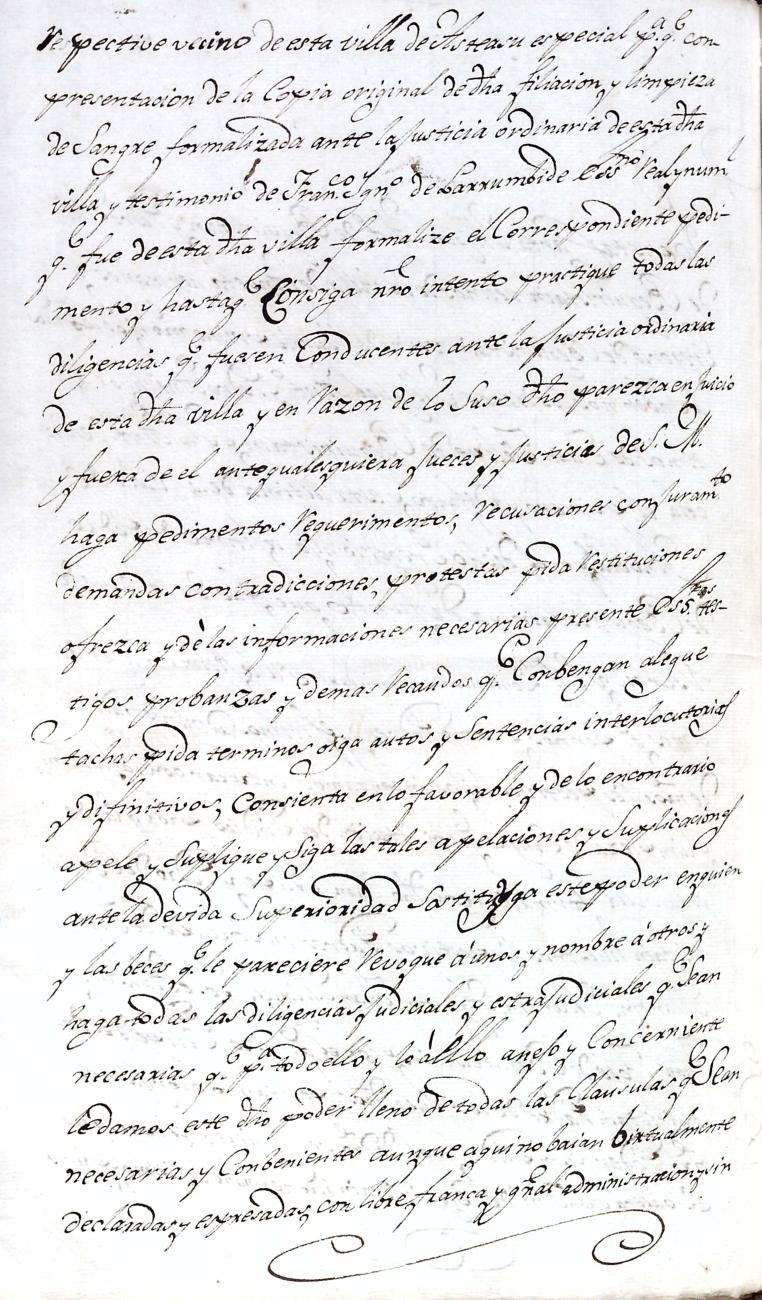 respective vecino de esta villa de Asteasu especial p.ª q.e con
presentacion de la Copia original de dha filiacion y limpieza
de Sangre formalizada ante la Justicia ordinaria de esta dha
villa y testimonio de Fran.co Ygn.o de Larrumbide Ess.no Real y num.l
q.e fue de esta dha villa formalize el Correspondiente pedi-
mento y hasta q.e Consiga nro intento practique todas las
diligencias q.e fuesen Conducentes ante la Justicia ordinaria
de esta dha villa y en razon de lo Suso dho parezca en Juicio
y fuera de el ante qualesquiera Jueces y Justicias de S. M.
haga pedimentos requerimentos, recusaciones con Juram.to
demandas contradicciones, protestas pida restituciones
ofrezca y dè las informaciones necesarias presente Ess.ras tes-
tigos probanzas y demas recaudos q.e Conbengan alegue
tachas pida terminos oiga autos y Sentencias interlocutorias
y difinitivos, Consienta en lo favorable y de lo encontrario
apele y Suplique y Siga las tales apelaciones y Suplicaciones
ante la devida Superioridad Sostituyga este poder en quien
y las beces q.e le pareciere revoque á unos y nombre á otros y
haga todas las diligencias Judiciales y estraJudiciales q.e Sean
necesarias q.e p.ª todo ello y lo á Ello anejo y Concerniente
le damos este dho poder lleno de todas las Clausulas q.e Sean
necesarias y Conbenientes aunque aqui no baian birtualmente
declaradas y espresadas, con libre franca y gñal administracion y sin